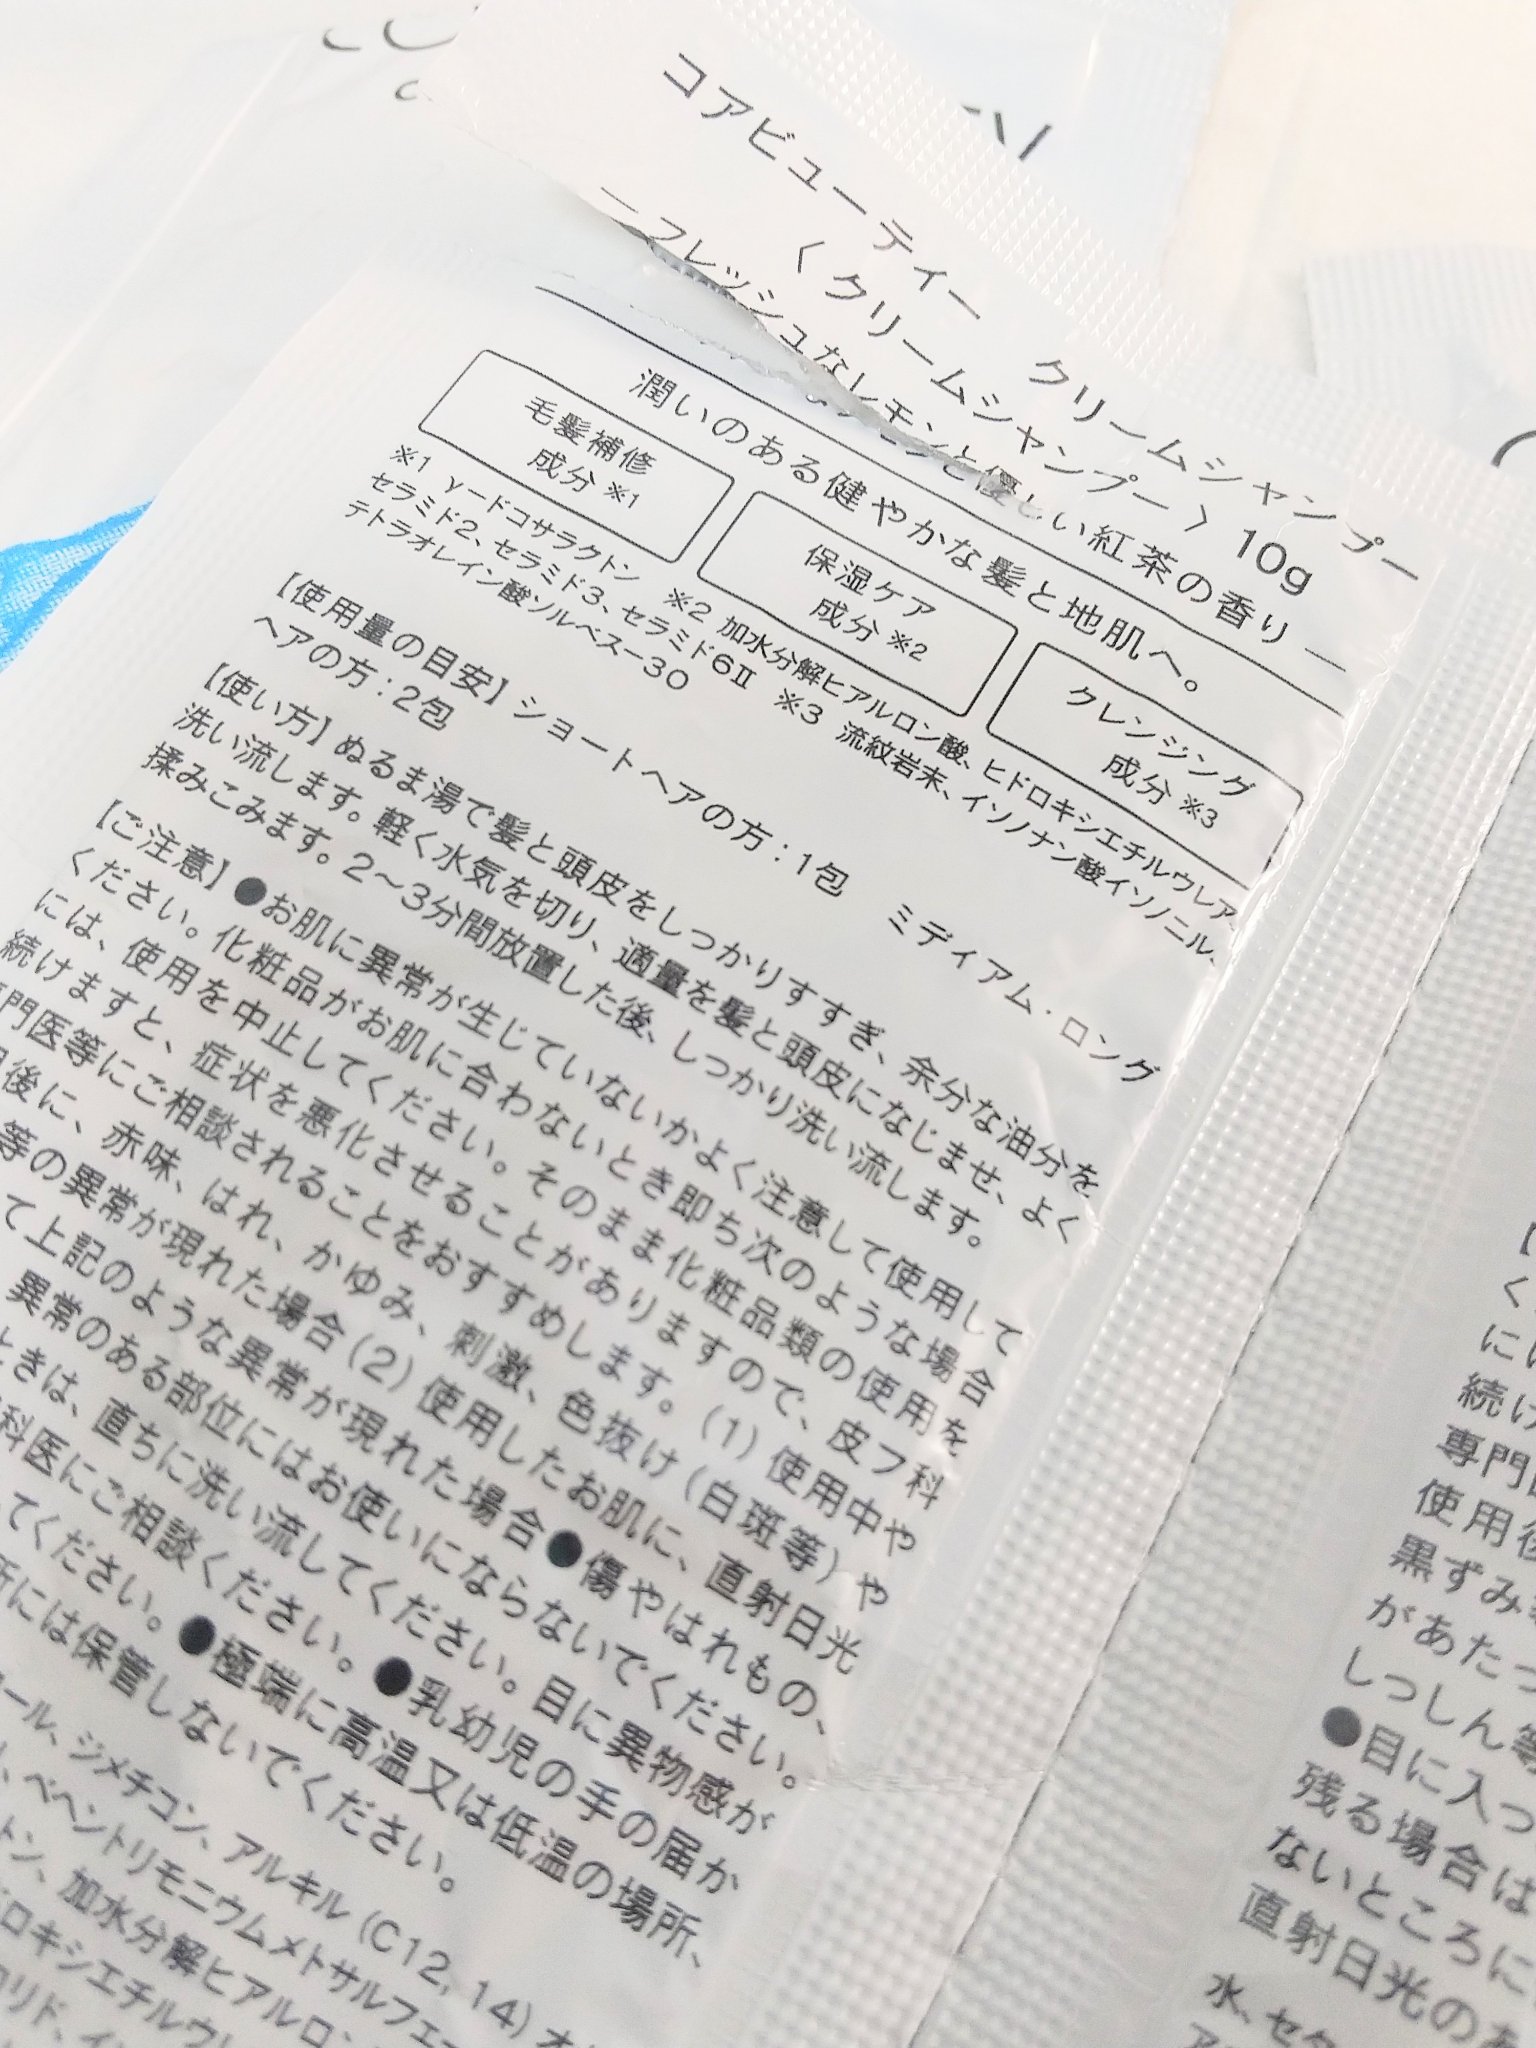 コアビューティー クリームシャンプー
〈クリームシャンプー〉10g
ーフレッシュなレモンと優しい紅茶の香りー
潤いのある健やかな髪と地肌へ。
毛髪補修
成分※1
保湿ケア
成分※2
クレンジング
成分※3
※1 γードコサラクトン ※2 加水分解ヒアルロン酸、ヒドロキシエチルウレア、
セラミド2、セラミド3、セラミド6Ⅱ ※3 流紋岩末、イソノナン酸イソノニル、
テトラオレイン酸ソルベスー30
【使用量の目安】ショートヘアの方：1包 ミディアム・ロング
ヘアの方：2包
【使い方】ぬるま湯で髪と頭皮をしっかりすすぎ、余分な油分を
洗い流します。軽く水気を切り、適量を髪と頭皮になじませ、よく
揉みこみます。2〜3分間放置した後、しっかり洗い流します。
【ご注意】●お肌に異常が生じていないかよく注意して使用して
ください。化粧品がお肌に合わないとき即ち次のような場合
には、使用を中止してください。そのまま化粧品類の使用を
続けますと、症状を悪化させることがありますので、皮フ科
門医等にご相談されることをおすすめします。(1)使用中や
後に、赤味、はれ、かゆみ、刺激、色抜け(白斑等)や
等の異常が現れた場合(2)使用したお肌に、直射日光
て上記のような異常が現れた場合●傷やはれもの、
異常のある部位にはお使いにならないでください。
ときは、直ちに洗い流してください。目に異物感が
科医にご相談ください。●乳幼児の手の届か
てください。●極端に高温又は低温の場所、
所には保管しないでください。
ール、ジメチコン、アルキル(C12,14)オ
ベヘントリモニウムメトサルフェ
トン、加水分解ヒアルロ
ロキシエチルウレ
クリド、イ
く
に
続け
専門
使用後
黒ずみ
があたっ
しっしん等
●目に入っ
残る場合は
ないところに
直射日光のあ
水、セタ